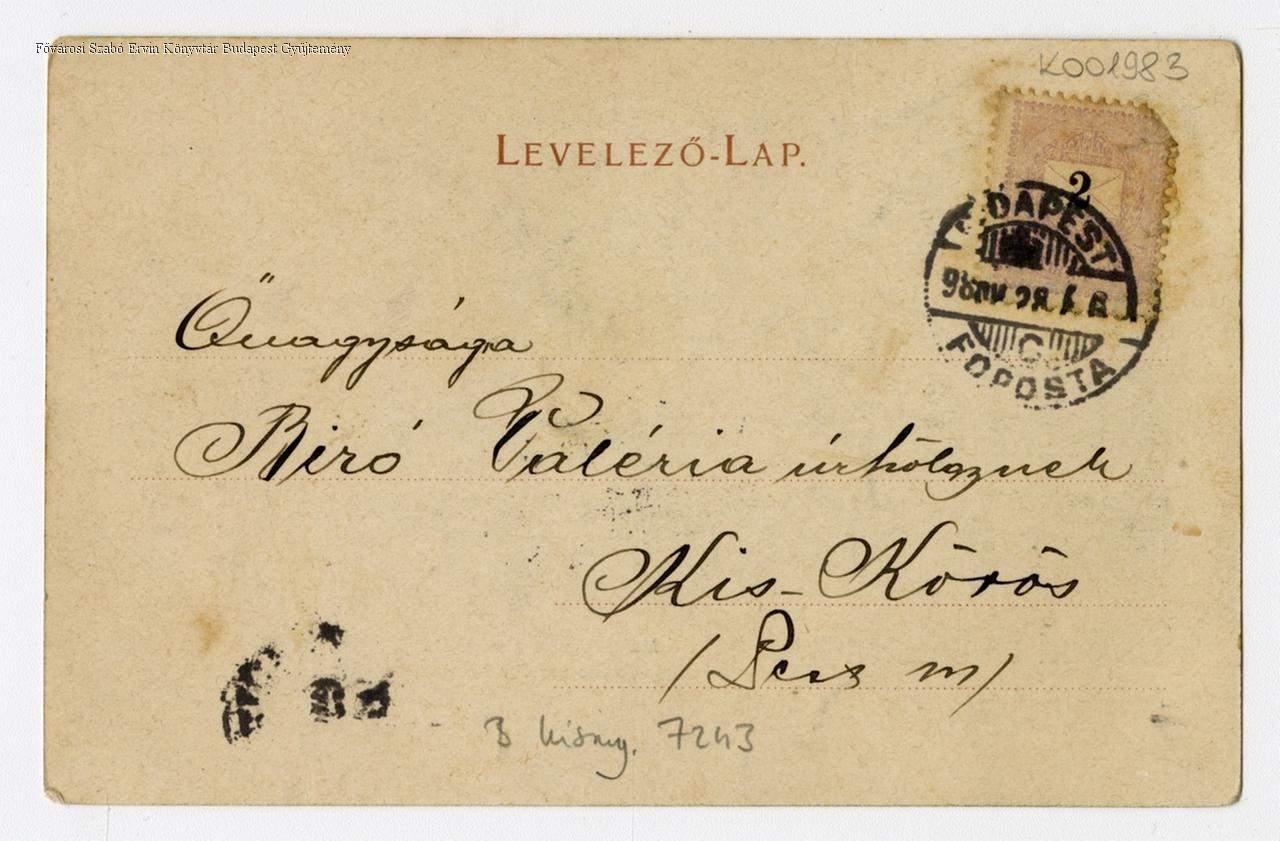 Fővárosi Szabó Ervin Könyvtár Budapest Gyűjtemény
K001983
LEVELEZŐ-LAP.
2
BUDAPEST
C
FŐPOSTA
Őnagysága
Biró Valéria úrhölgynek
Kis-Kőrös
/Pest m/
B kisny. 7243